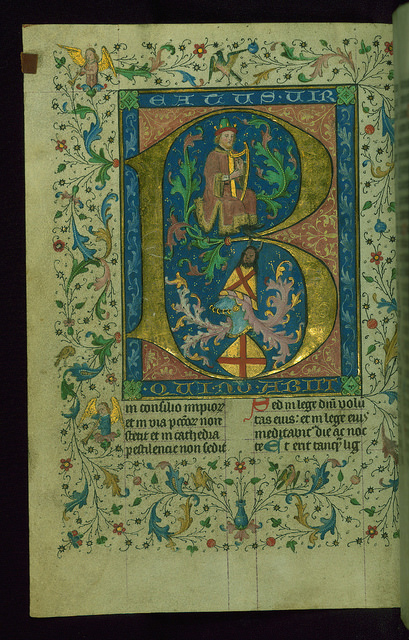 EATUS·VIR
·QUI NU ABIIT
in consilio impior
et in via pctor̄ non
stetit et in cathedra
pestilencie non sedit
Sed in lege dn̄i volū
tas eius: et in lege eius
meditabit̄ die ac noc
te Et erit tanqͣ lig